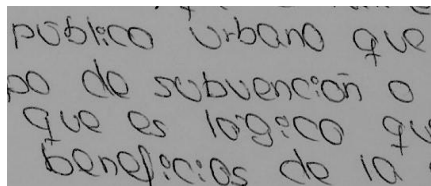 público urbano que
po de subvención o
que es lógico qu
beneficios de la